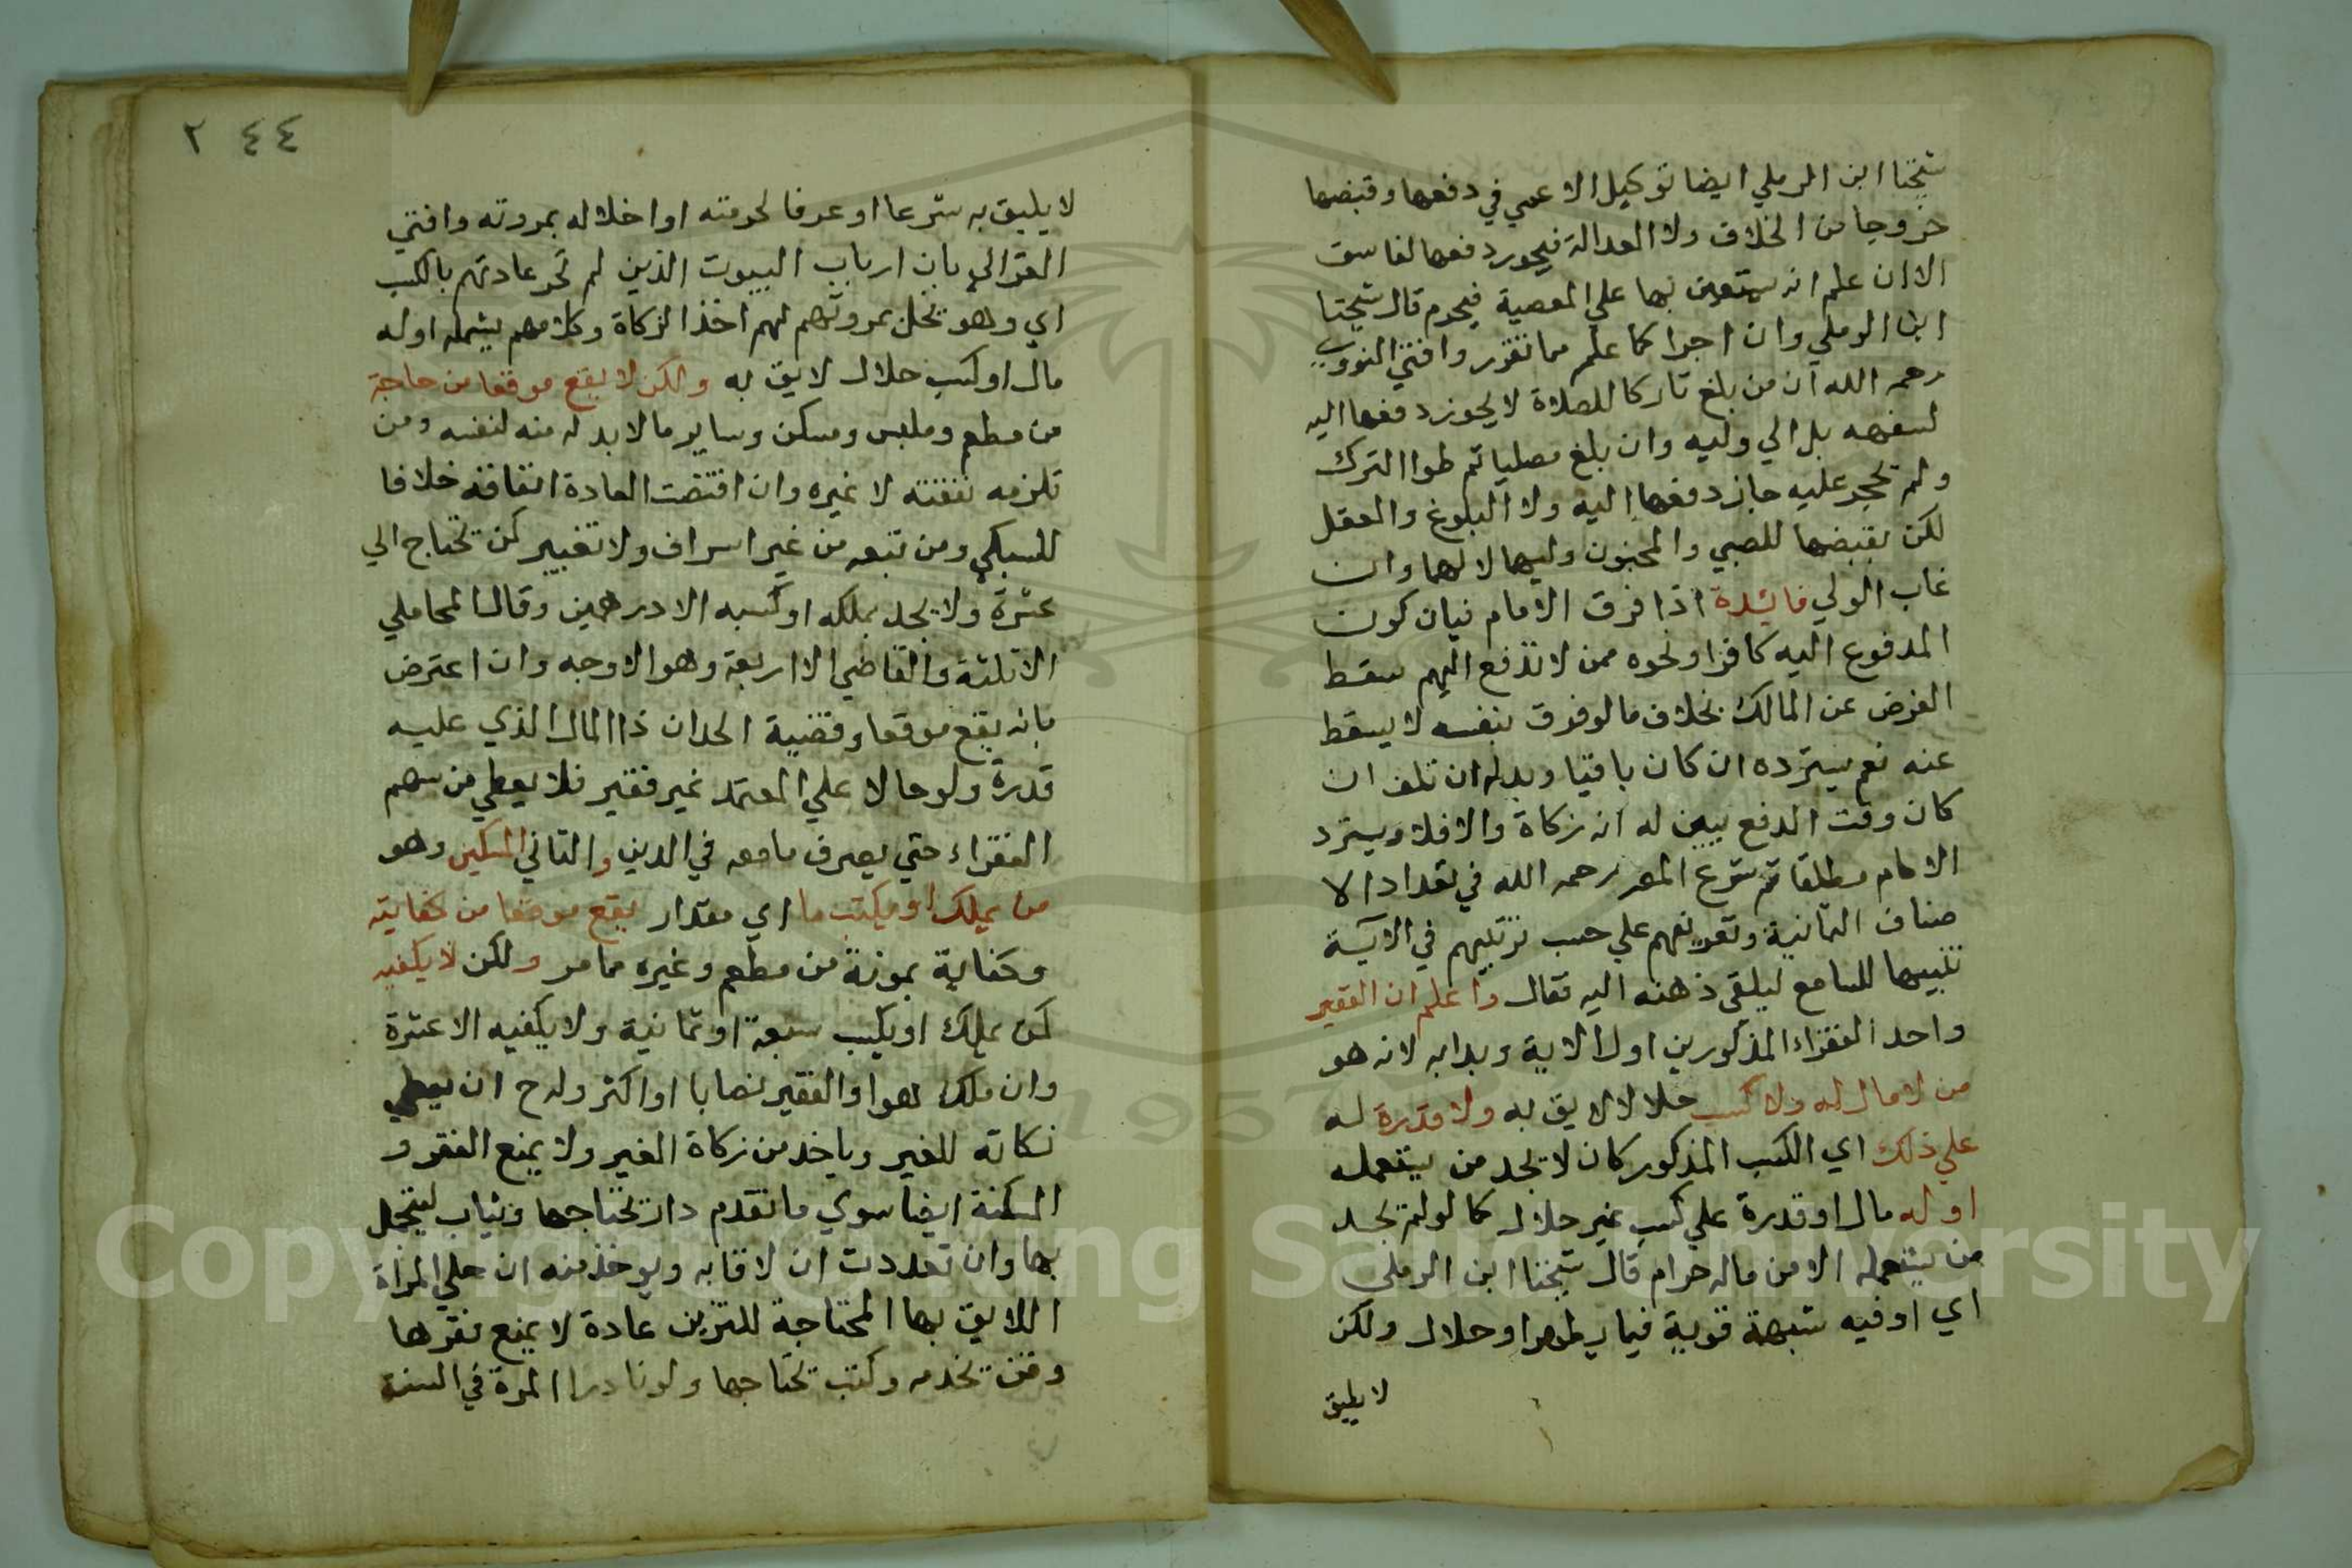 شيخنا ابن الرملي ايضا توكيل الاعمي في دفعها وقبضها
خروجا من الخلاف ولا العدالة فيجوز دفعها لفاسق
الا ان علم انه يستعين بها علي المعصية فيحرم قال شيخنا
ابن الرملي وان اجزا كما علم مما تقرر وافتي النووي
رحمه الله ان من بلغ تاركا للصلاة لا يجوز دفعها اليه
لسفهه بل الي وليه وان بلغ مصليا ثم طرا الترك
ولم يحجر عليه جاز دفعها اليه ولا البلوغ والعقل
لكن يقبضها للصبي والمجنون وليهما لا لهما وان
غاب الولي فايدة اذا فرق الامام فبان كون
المدفوع اليه كافرا ونحوه ممن لا تدفع اليهم سقط
الفرض عن المالك بخلاف ما لو فرق بنفسه لا يسقط
عنه نعم يسترده ان كان باقيا وبدله ان تلف ان
كان وقت الدفع يبين له انه زكاة والا فلا ويسترد
الامام مطلقا ثم شرع المص رحمه الله في تعداد الا
صناف الثمانية وتعريفهم علي حسب ترتيبهم في الاية
تنبيها للسامع ليلقي ذهنه اليه فقال واعلم ان الفقير
واحد الفقراء المذكورين اول الاية وبدا به لانه هو
من لا مال له ولا كسب حلالا لايق به ولا قدرة له
علي ذلك اي الكسب المذكور كان لا يجد من يستعمله
او له مال او قدرة علي كسب غير حلال كما لو لم يجد
من يستعمله الا من ماله حرام قال شيخنا ابن الرملي
اي او فيه شبهة قوية فيما يظهر او حلال ولكن
لا يليق
٢ ٤٤
لا يليق به شرعا او عرفا لحرمته او اخلاله بمروته وافتي
الغزالي بان ارباب البيوت الذين لم تجر عادتهم بالكسب
اي وهو يخل بمروتهم لهم اخذ الزكاة وكلامهم يشمله اوله
مال او كسب حلال لايق به ولكن لا يقع موقعا من حاجة
من مطعم وملبس ومسكن وساير ما لا بد له منه لنفسه ومن
تلزمه نفقته لا غيره وان اقتضت العادة انفاقه خلافا
للسبكي ومن تبعه من غير اسراف ولا تقتير كمن يحتاج الي
عشرة ولا يجد بملكه او كسبه الا درهمين وقال المحاملي
الا ثلثة والقاضي الا اربعة وهو الاوجه وان اعترض
بانه يقع موقعا وقضية الحد ان ذا المال الذي عليه
قدره ولو حالا علي المعتمد غير فقير فلا يعطي من سهم
الفقراء حتي يصرف ما معه في الدين والثاني المسكين وهو
من يملك او يكتسب ما اي مقدار يقع موقعا من كفايته
وكفاية بمونة من مطعم وغيره مما مر ولكن لا يكفيه
كمن يملك او يكسب سبعة او ثمانية ولا يكفيه الا عشرة
وان ملك هو او الفقير نصابا او اكثر وله ح ان يعطي
زكاته للغير وياخذ من زكاة الغير ولا يمنع الفقر و
المسكنة ايضا سوي ما تقدم دار تحتاجها وثياب ليتجمل
بها وان تعددت ان لاقا به ويوخذ منه ان حلي المراة
اللايق بها المحتاجة للتزين عادة لا يمنع فقرها
وقن يخدمه وكتب تحتاجها ولو نادرا المرة في السنة
1957
Copyright © King Saud University